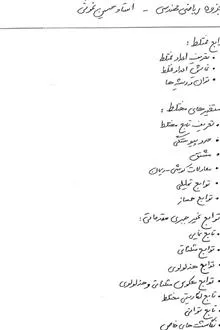 جزوه ریاضی مهندسی - استاد حسین
اعداد مختلط :
• تعریف اعداد مختلط
• نمایش اعداد مختلط
• توان و ریشه ها
متغیرهای مختلط :
• تعریف تابع مختلط
• حد و پیوستگی
• مشتق
• معادلات کوشی-ریمان
• توابع تحلیلی
• توابع همساز
توابع غیر جبری مقدماتی :
• تابع نمایی
• توابع مثلثاتی
• توابع هذلولوی
• توابع معکوس مثلثاتی و هذلولوی
• تابع لگاریتمی مختلط
• تابع توانی